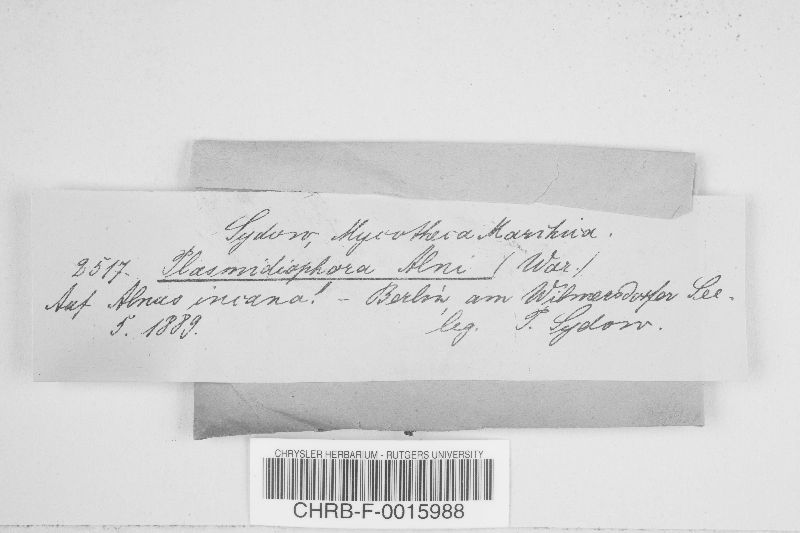 Sydow, Mycotheca Marchica.
2517. Plasmidiophora Alni (Wor.)
Auf Alnus incana! – Berlin, am Wilmersdorfer See.
5. 1889. leg. P. Sydow.
CHRYSLER HERBARIUM - RUTGERS UNIVERSITY
CHRB-F-0015988